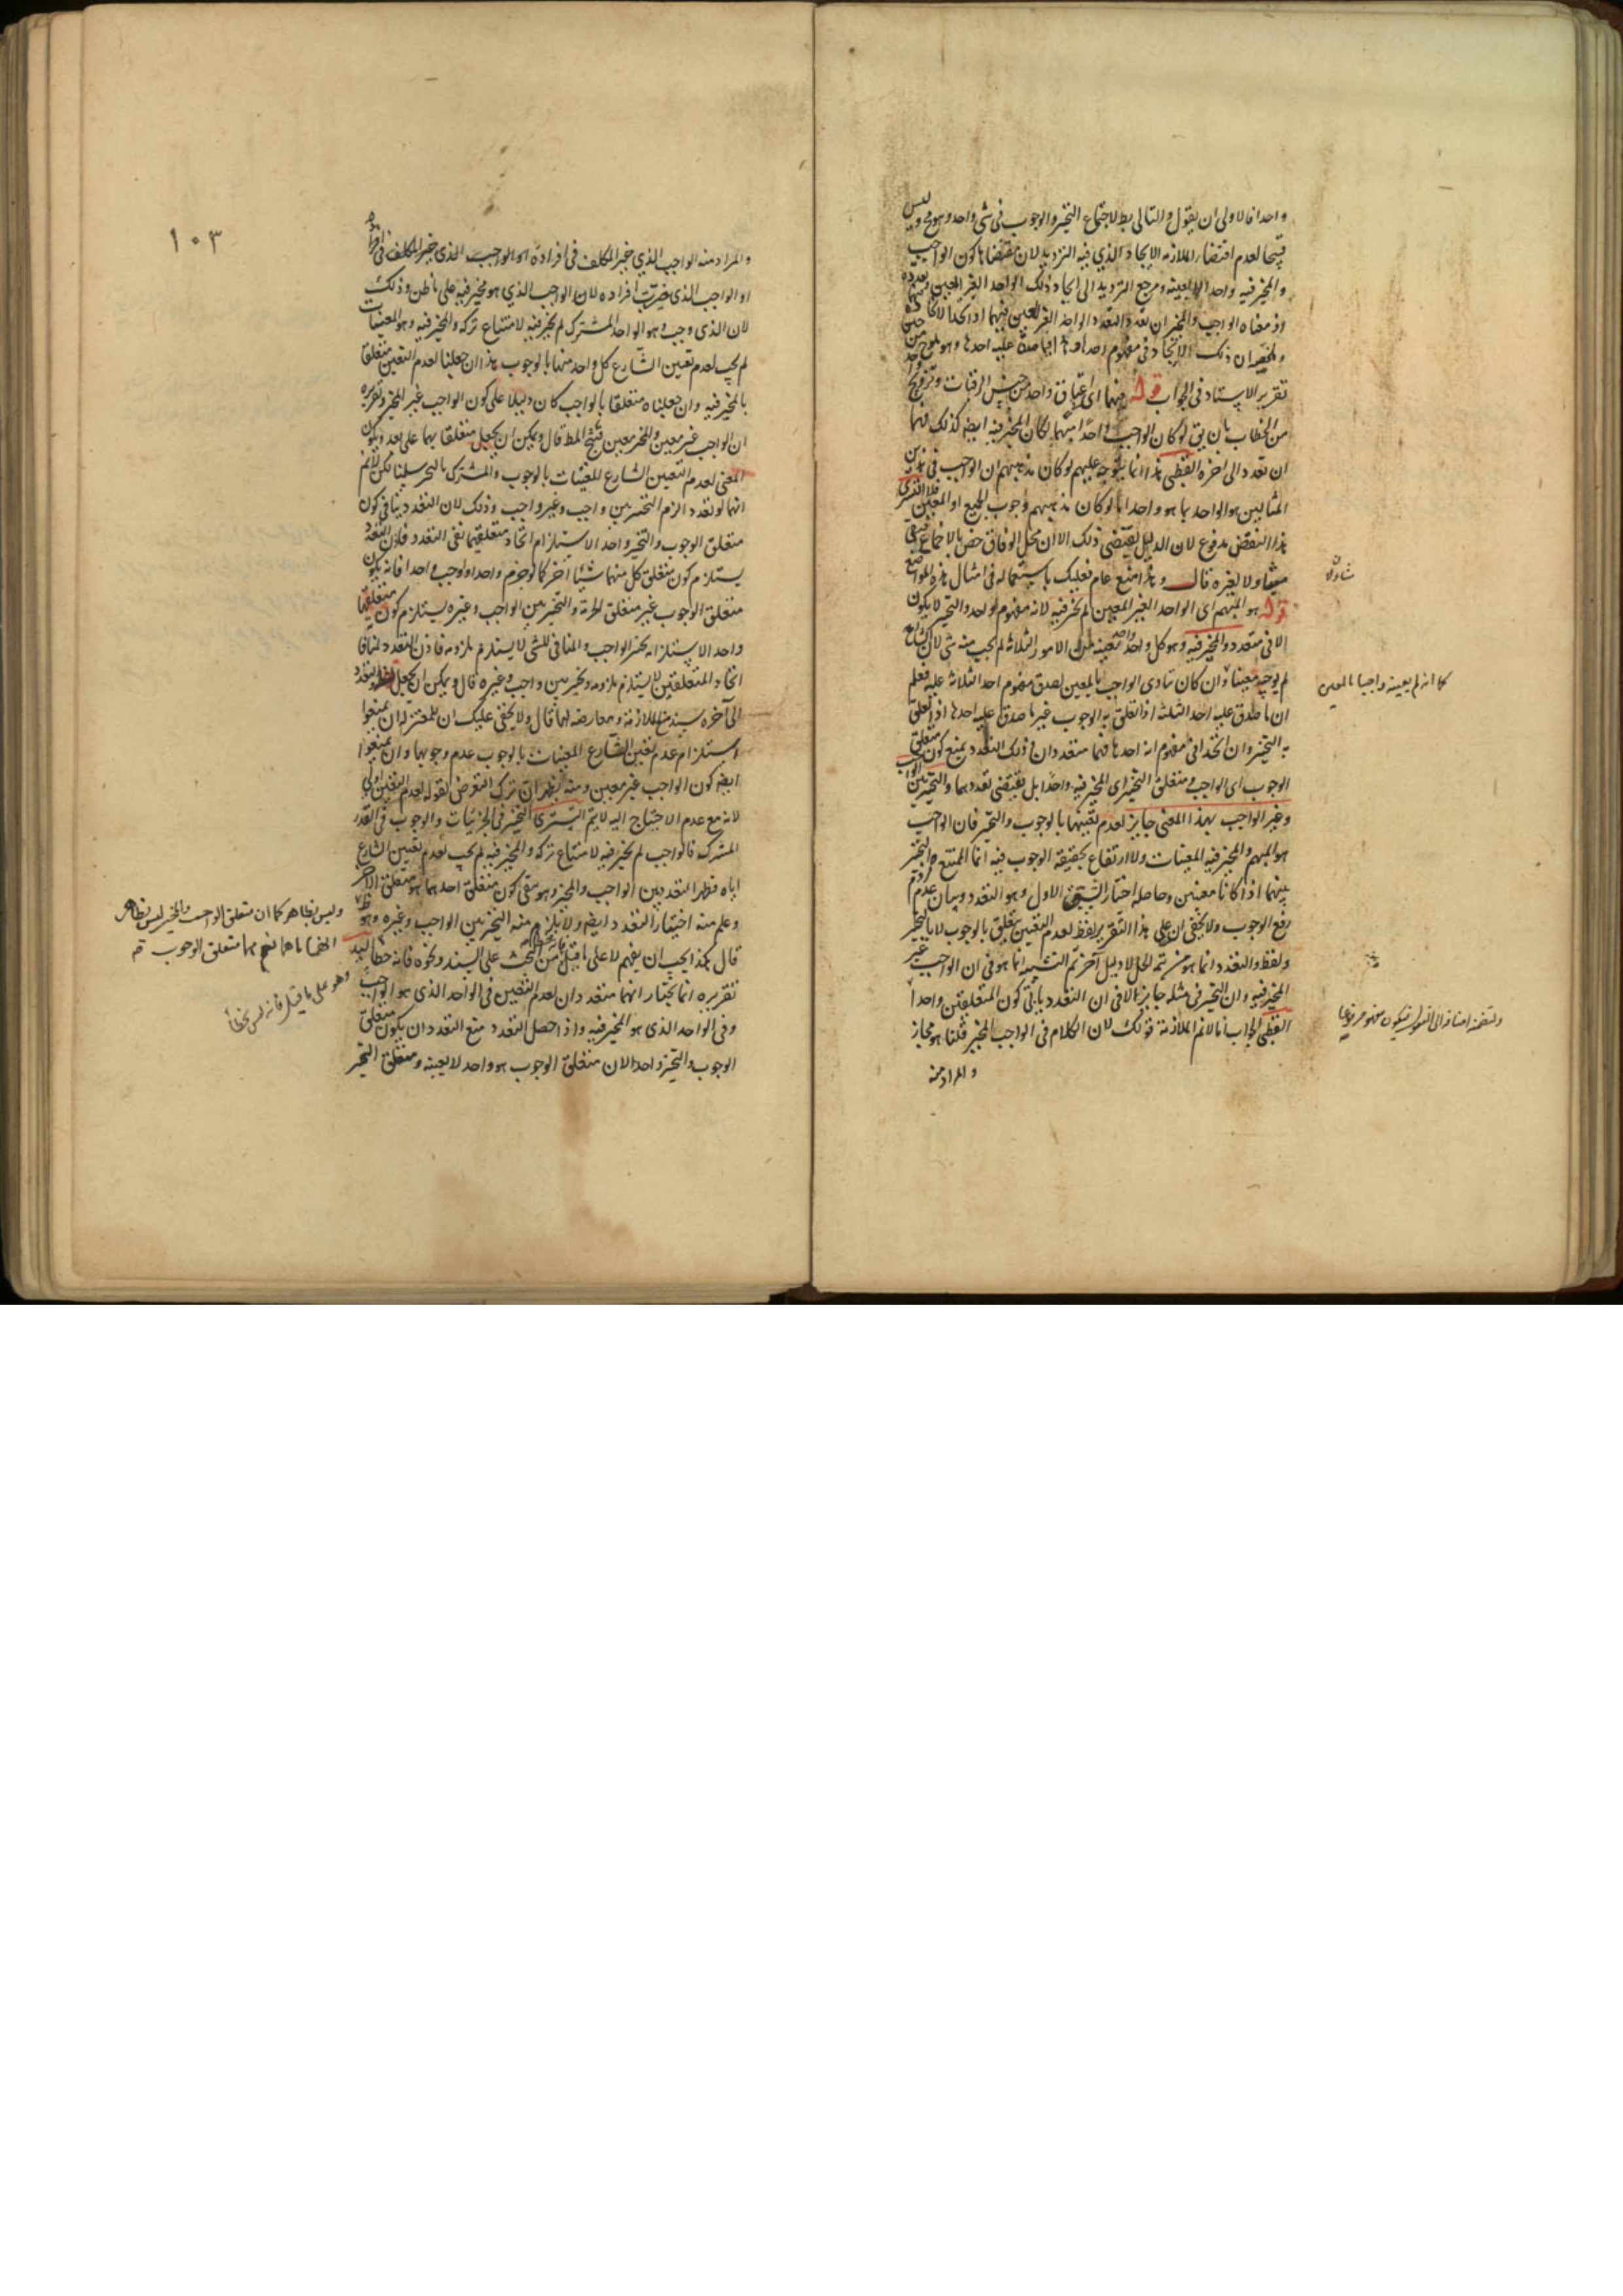 واحدا فالاولى ان يقول والتالى بط لاجتماع التخيير والوجوب فى شى واحد وهو مح وليس
قبيحا لعدم اقتضاء الملازمة الايجاد الذي فيه الترديد لان مقتضاها كون الواجب
والمخير فيه واحدا لا بعينه ومرجع الترديد الى ايجاد ذلك الواحد الغير المعين
اذ معناه الواجب والمخير ان تعدد التعدد الواحد الغير المعين فيهما او اتحدا لاتحاده
ان ذلك الاتحاد فى مفهوم احدها ما صدق عليه احدها وهو
تقرير الاستاد فى الجواب قوله فيهما اى اعتاق واحد من جنس الرقبات وتزويج
من الخطاب بان يق لو كان الواجب واحدا منهما لكان المخير فيه ايضا كذلك فهما
ان تعدد الى اخره القطبى هذا انما يتوجه عليهم لو كان مذهبهم ان الواجب فى هذين
المثالين هو الواحد بما هو واحد اما لو كان مذهبهم وجوب الجميع او المعين فلا
هذا النقض مدفوع لان الدليل يقتضى ذلك الا ان محل الوفاق خص بالاجماع فبقى
ولا يغره قال وهذا منع عام فعليك باستعماله فى امثال هذه المواضع
قوله هو المبهم اى الواحد الغير المعين لم يخير فيه لانه مفهوم واحد والتخيير لا يكون
الا فى متعدد والمخير فيه وهو كل واحد واحد معينة من الامور الثلاثة لم يجب منه شى لان الشارع
لم يوجبه معينا وان كان تادى الواجب بالمعين لصدق مفهوم احد الثلاثة عليه فعلم
ان ما صدق عليه احد الثلثة اذا تعلق به الوجوب غير ما صدق عليه احدها اذا تعلق
به التخيير وان اتحدا فى مفهوم انه احدها فهما متعددان اذ ذلك التعدد يمنع كون متعلق
الوجوب اى الواجب ومتعلق التخيير اى المخير فيه واحدا بل يقتضى تعددهما والتخيير بين الواجب
وغير الواجب بهذا المعنى جايز لعدم تعينهما بالوجوب والتخيير فان الواجب
هو المبهم والمخير فيه المعينات ولا ارتفاع بحقيقة الوجوب فيه انما الممتنع التخيير
بينهما اذا كانا معينين وحاصله اختيار الشق الاول وهو التعدد وبيان عدم
رفع الوجوب ولا يخفى ان على هذا التقرير لفظ لعدم التعيين يتعلق بالوجوب لا بالتخيير
ولفظ والتعدد انما هو من تتمة الحل لا دليل آخر ثم التشبيه انما هو فى ان الواجب غير
المخير فيه وان التخيير فى مثله جايز الا فى ان التعدد يابى كون المتعلقين واحدا
القطبى الجواب انا لا نم الملازمة قولك لان الكلام فى الواجب المخير قلنا هو مجاز
والمراد منه
كما انه لم يعينه واجبا بالمعين
١٠٣
والمراد منه الواجب الذي خير المكلف فى افراده او الواجب الذى خير المكلف فى
او الواجب الذى خيرت افراده لان الواجب الذي هو مخير فيه على ما ظن وذلك
لان الذى وجب وهو الواحد المشترك لم يخير فيه لامتناع تركه والمخير فيه وهو المعينات
لم يجب لعدم تعيين الشارع كل واحد منها بالوجوب هذا ان جعلنا لعدم التعيين متعلقا
بالمخير فيه وان جعلناه متعلقا بالواجب كان دليلا على كون الواجب غير المخير وتقريره
ان الواجب غير معين والمخير معين فينتج المط قال ويمكن ان يجعل متعلقا بهما على بعد ويكون
المعنى لعدم التعيين الشارع للمعينات بالوجوب والمشترك بالتخيير سلمنا لكن لا نم
انهما لو تعددا لزم التخيير بين واجب وغير واجب وذلك لان التعدد ينافى كون
متعلق الوجوب والتخيير واحدا لاستلزام اتحاد متعلقيهما نفى التعدد فاذن التعدد
يستلزم كون متعلق كل منهما شيئا آخر كما لو حرم واحدا واوجب واحدا فانه يكون
متعلق الوجوب غير متعلق الحرمة والتخيير بين الواجب وغيره يستلزم كون متعلقهما
واحد الاستلزامه تخير الواجب والمنافى للشى لا يستلزم ملزومه فاذن التعدد لمنافا
اتحاد المتعلقين لا يستلزم ملزومه وتخيير بين واجب وغيره قال ويمكن ان يجعل لفظ والتعدد
الى آخره سند منع الملازمة ومعارضة لها قال ولا يخفى عليك ان للمعتزلة ان يمنعوا
استلزام عدم تعيين الشارع المعينات بالوجوب عدم وجوبها وان يمنعوا
ايضا كون الواجب غير معين ومنه يظهر ان ترك التعرض لقوله لعدم التعيين اولى
لانه مع عدم الاحتياج اليه لا يتم التستري التخيير فى الجزئيات والوجوب فى القدر
المشترك فالواجب لم يخير فيه لامتناع تركه والمخير فيه لم يجب لعدم تعيين الشارع
اياه فظهر التعدد بين الواجب والمخير وهو ينفى كون متعلق احدهما هو متعلق الآخر
وعلم منه اختيار التعدد ايضا ولا يلزم منه التخيير بين الواجب وغيره وهو ظ
قال هكذا يجب ان يفهم لا على ما قيل من البحث على السند ونحوه فانه خطا السيد
تقريره انا نختار انهما متعددان لعدم التعيين فى الواحد الذى هو الواجب
وفى الواحد الذى هو المخير فيه واذا حصل التعدد منع التعدد ان يكون متعلق
الوجوب والتخيير واحدا لان متعلق الوجوب هو واحد لا بعينه ومتعلق التخيير
وليس بظاهر كما ان متعلق الواجب والمخير ليس بظاهر
وهو على ما قيل فانه ليس بخطأ